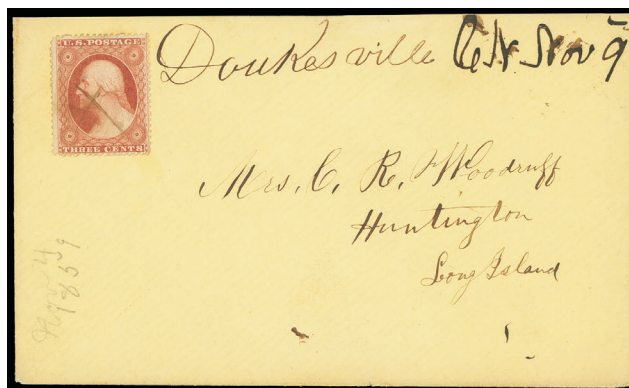 U.S. POSTAGE
THREE CENTS
Doukesville Nov 9
Mrs. C. R. Woodruff
Huntington
Long Island
Nov 4
1859